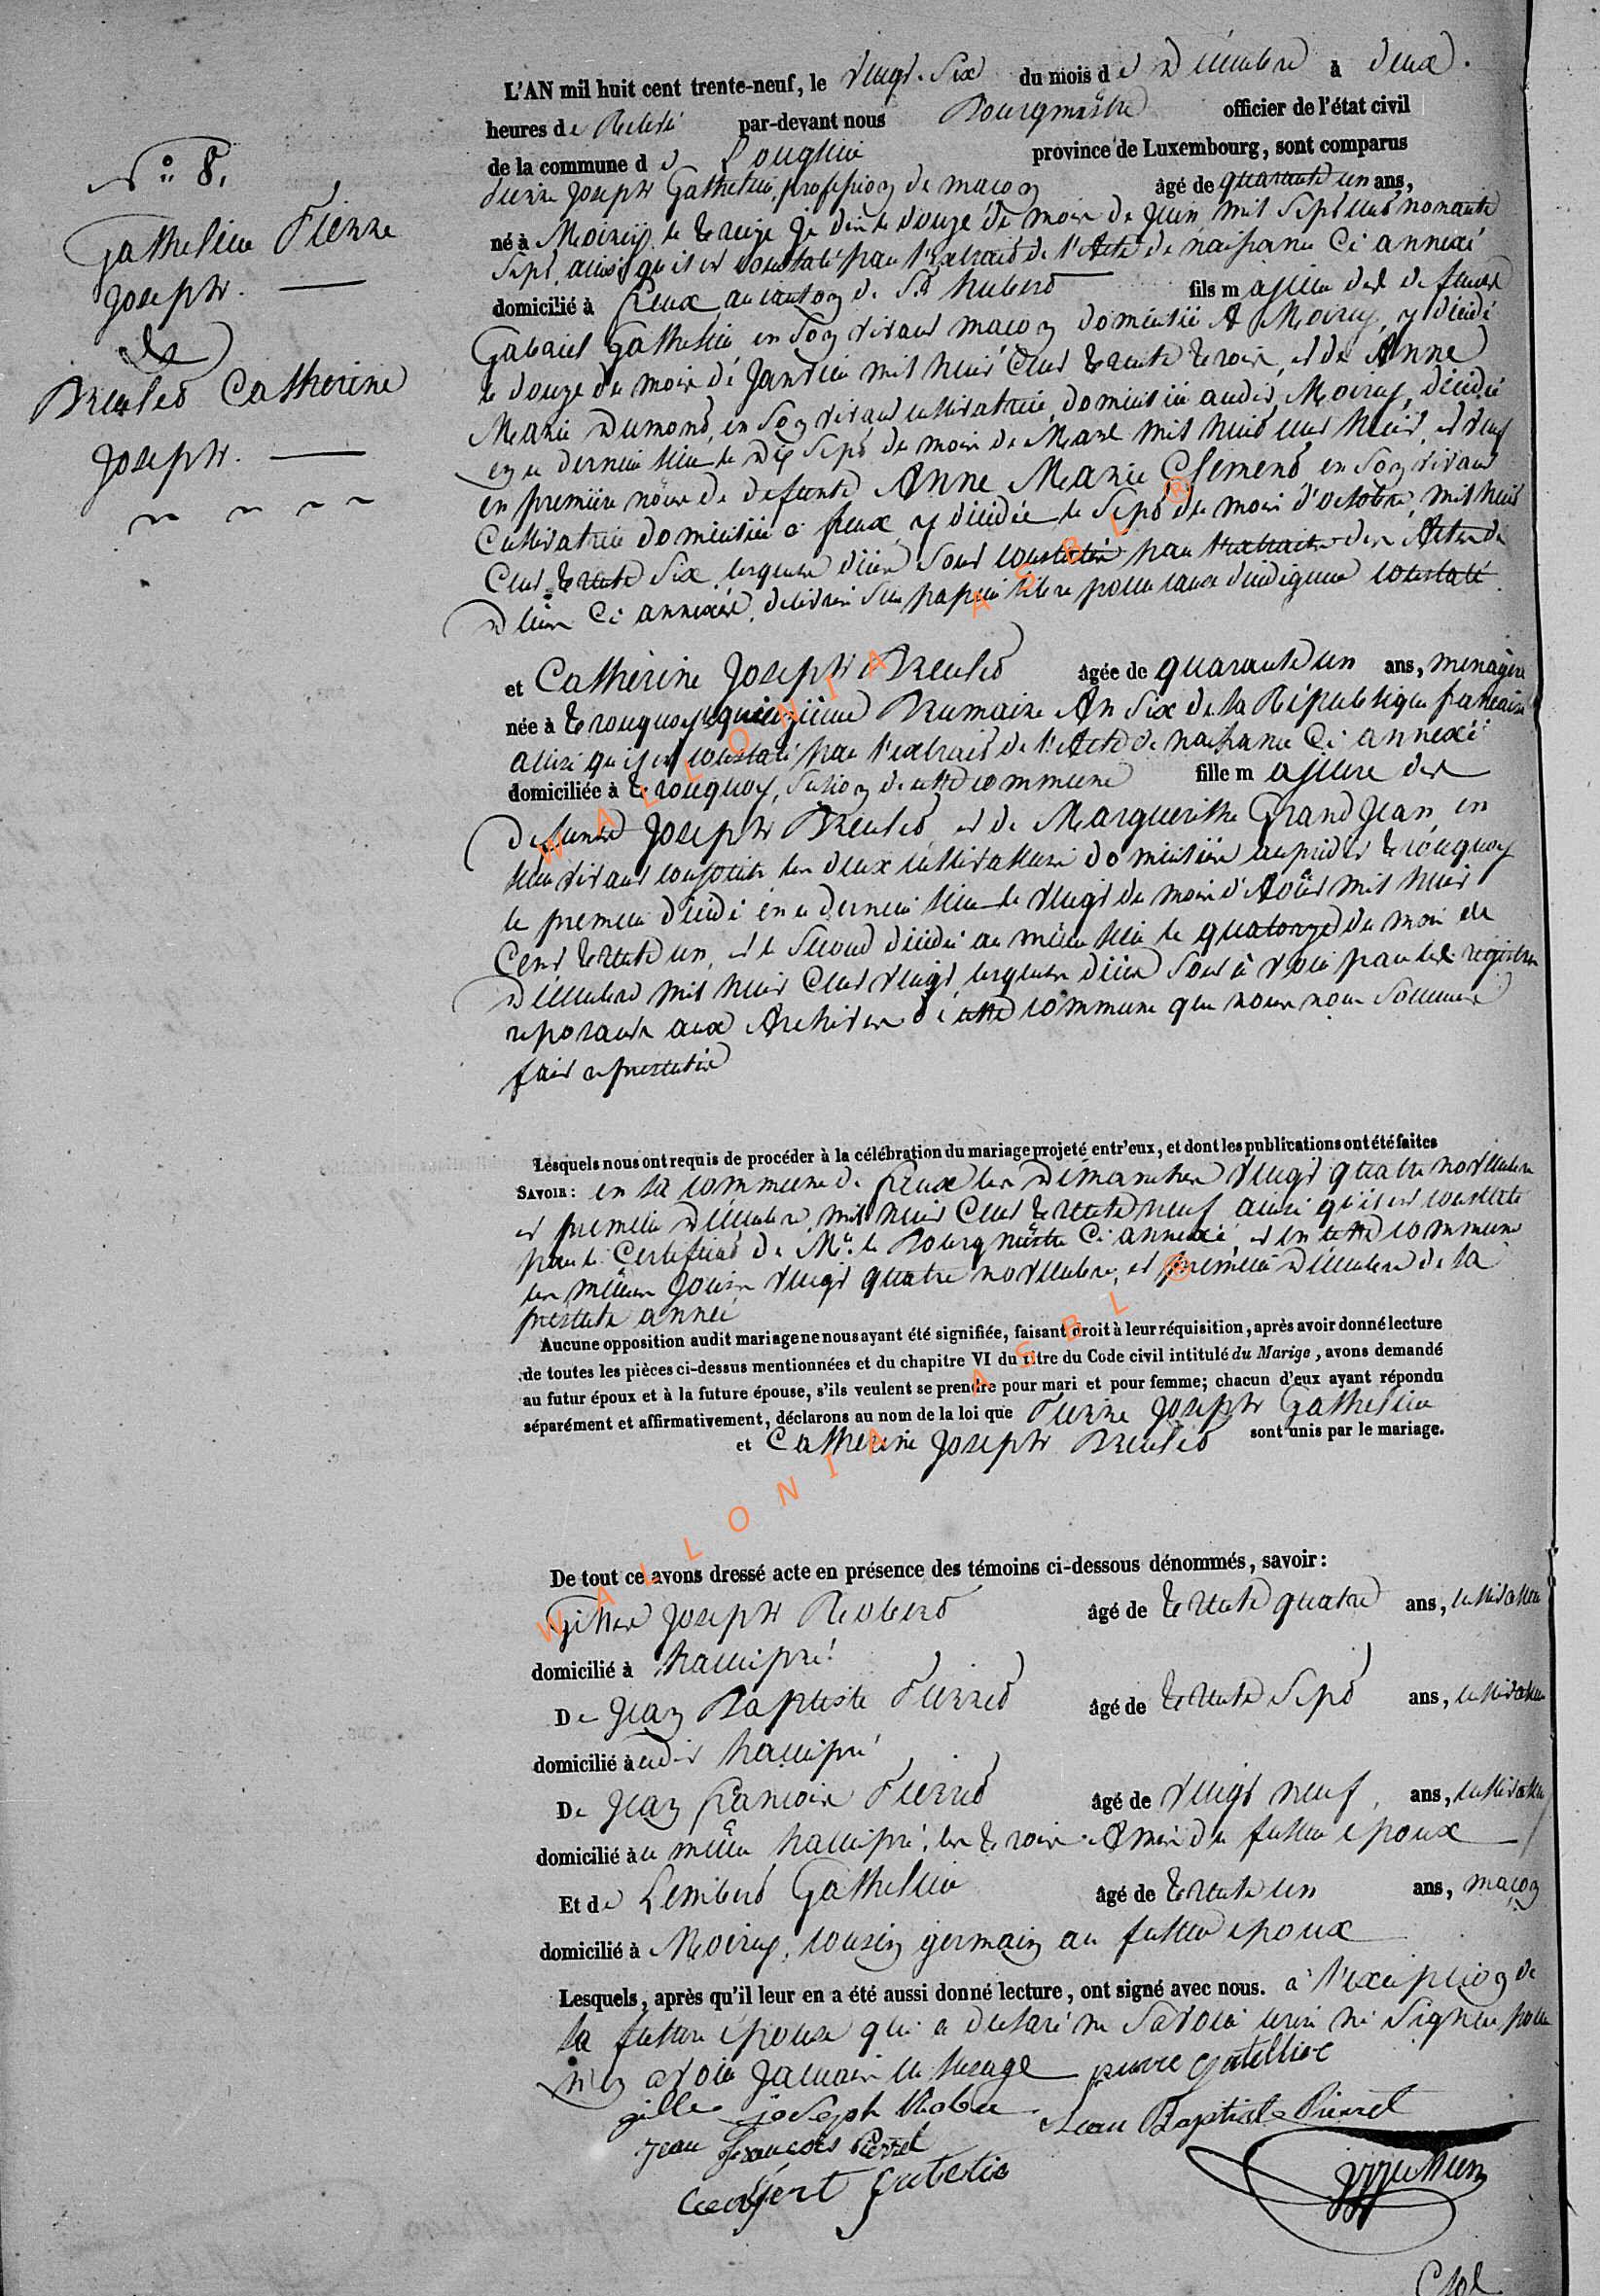 N.° 8.
Gathelier Pierre
Joseph.
&
Breulet Catherine
Joseph.
L'AN mil huit cent trente-neuf, le vingt-Six du mois de Décembre à deux
heures de Relevée par-devant nous Bourgmestre officier de l'état civil
de la commune de Longlier province de Luxembourg, sont comparus
Pierre Joseph Gathelier, profession de maçon âgé de quarante un ans,
né à Moircy, le treize douze du mois de Juin mil Sept cent nonante
Sept, ainsi qu'il est constaté par l'Extrait de l'Acte de naissance Ci annexé
domicilié à freux au canton de St. hubert fils majeur des de feux
Gabriel Gathelier en Son vivant maçon domicilié A Moircy, y décédé
le douze du mois de Janvier mil huit Cent trente trois, et de Anne
Marie Dumont, en Son vivant cultivatrice, domiciliée audit Moircy, décédée
en ce dernier lieu le Dix Sept du mois de Mars mil huit cent huit, et veuf
en première nôce de defunte Anne Marie Clement en Son vivant
Cultivatrice domiciliée à freux y décédée le Sept du mois d'octobre mil huit
Cent trente Six, lesquels décès Sont constatés par l'extraits des Actes de
Décès Ci annexés, delivrés Sur papier libre pour cause d'indigence constaté
et Catherine Joseph Breulet âgée de quarante un ans, menagère
née à tronquoy le quinzieme Brumaire An Six de la République française
ainsi qu'il est constaté par l'extrait de l'Acte de naissance Ci annexé
domiciliée à tronquoy, Section de cette commune fille majeure des
defunts Joseph Breulet et de Marguerithe Grand Jean, en
leur vivant conjoints les deux cultivateurs domiciliés au prédit tronquoy
le premier décédé en ce dernier lieu le vingt du mois d'Août mil huit
Cent trente un, et le Second décédé au même lieu le quatorze du mois de
Décembre mil huit Cent vingt, lesquels décès Sont à voir par les registres
reposants aux Archives de cette commune que nous nous Sommes
fait representer
Lesquels nous ont requis de procéder à la célébration du mariage projeté entr'eux, et dont les publications ont été faites
SAVOIR: en la commune de freux les Dimanches vingt quatre novembre
et premier Décembre, mil huit Cent trente neuf ainsi qu'il est constaté
par le Certificat de Mr. le Bourgmestre Ci annexé et en cette commune
les mêmes Jours vingt quatre novembre, et premier Décembre de la
presente année
Aucune opposition audit mariage ne nous ayant été signifiée, faisant droit à leur réquisition, après avoir donné lecture
de toutes les pièces ci-dessus mentionnées et du chapitre VI du titre du Code civil intitulé du Marige, avons demandé
au futur époux et à la future épouse, s'ils veulent se prendre pour mari et pour femme; chacun d'eux ayant répondu
séparément et affirmativement, déclarons au nom de la loi que Pierre Joseph Gathelier
et Catherine Joseph Breulet sont unis par le mariage.
De tout ce avons dressé acte en présence des témoins ci-dessous dénommés, savoir:
Gilles Joseph Robert âgé de trente quatre ans, cultivateur
domicilié à hamipré
De Jean Baptiste Pierret âgé de trente Sept ans, cultivateur
domicilié audit hamipré
De Jean françois Pierret âgé de vingt neuf, ans, cultivateur
domicilié à ce même hamipré, les trois Amis du futur époux
Et de Lambert Gathelier âgé de trente un ans, maçon
domicilié à Moircy, cousin germain au futur époux
Lesquels, après qu'il leur en a été aussi donné lecture, ont signé avec nous. à l'exception de
la future épouse qui a declaré ne Savoir ecrire ni Signer pour
n'en avoir Jamais eu lusage pierre gatellier
gille joseph Robert Jean Baptiste Pierret
Jean François Pierret
WALLONIA ASBL ®
WALLONIA ASBL ®